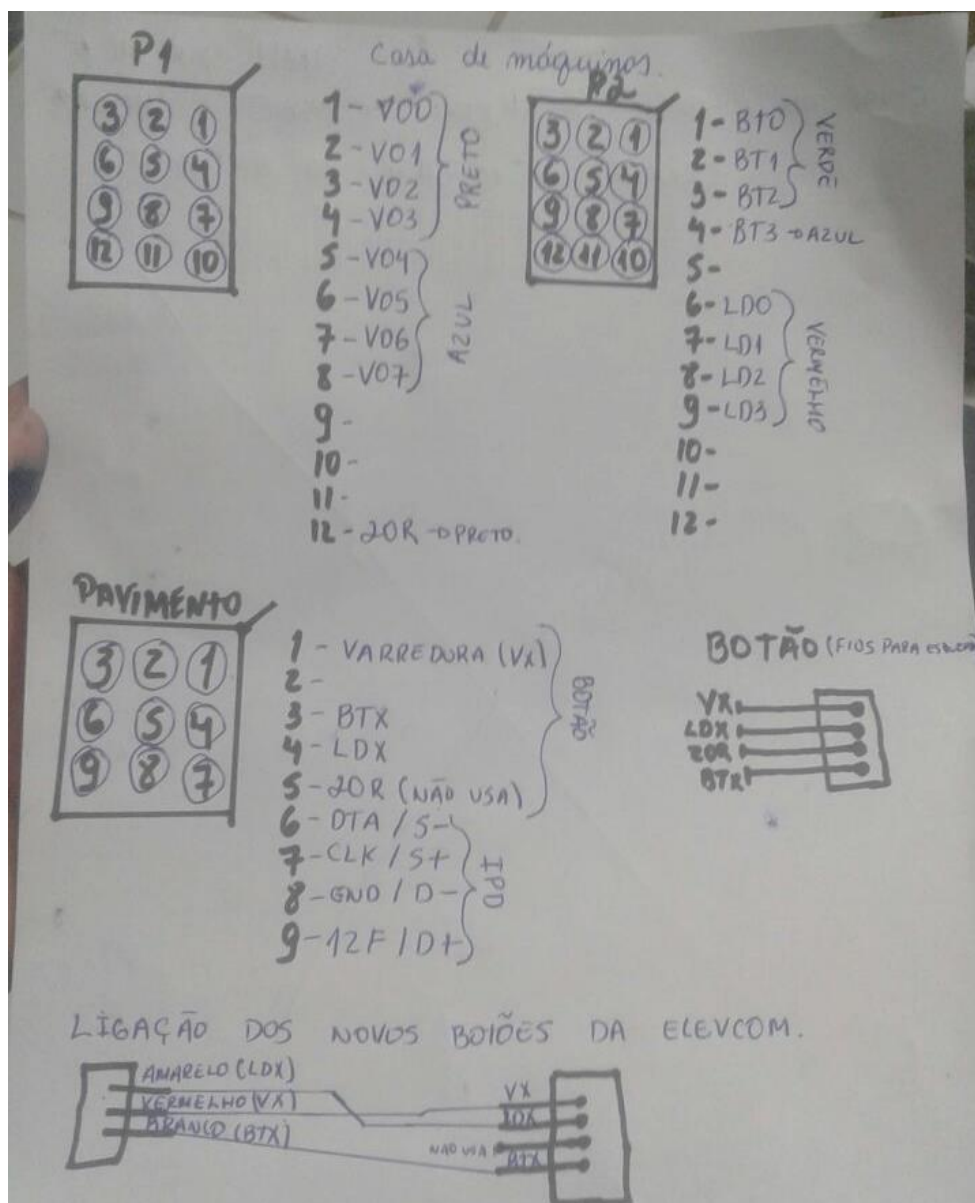 P1
Casa de máquinas.
3 2 1
6 5 4
9 8 7
12 11 10
1 - V00
2 - V01
3 - V02
4 - V03
PRETO
5 - V04
6 - V05
7 - V06
8 - V07
AZUL
9 -
10 -
11 -
12 - 20R → PRETO.
P2
3 2 1
6 5 4
9 8 7
12 11 10
1 - BT0
2 - BT1
3 - BT2
VERDE
4 - BT3 → AZUL
5 -
6 - LD0
7 - LD1
8 - LD2
9 - LD3
VERMELHO
10 -
11 -
12 -
PAVIMENTO
3 2 1
6 5 4
9 8 7
1 - VARREDURA (VX)
2 -
3 - BTX
4 - LDX
5 - 20R (NÃO USA)
BOTÃO
6 - DTA / S-
7 - CLK / S+
8 - GND / D-
9 - 12F / D+
IPD
BOTÃO (FIOS PARA
VX
LDX
20R
BTX
LIGAÇÃO DOS NOVOS BOTÕES DA ELEVCOM.
AMARELO (LDX)
VERMELHO (VX)
BRANCO (BTX)
VX
LDX
NÃO USA
BTX